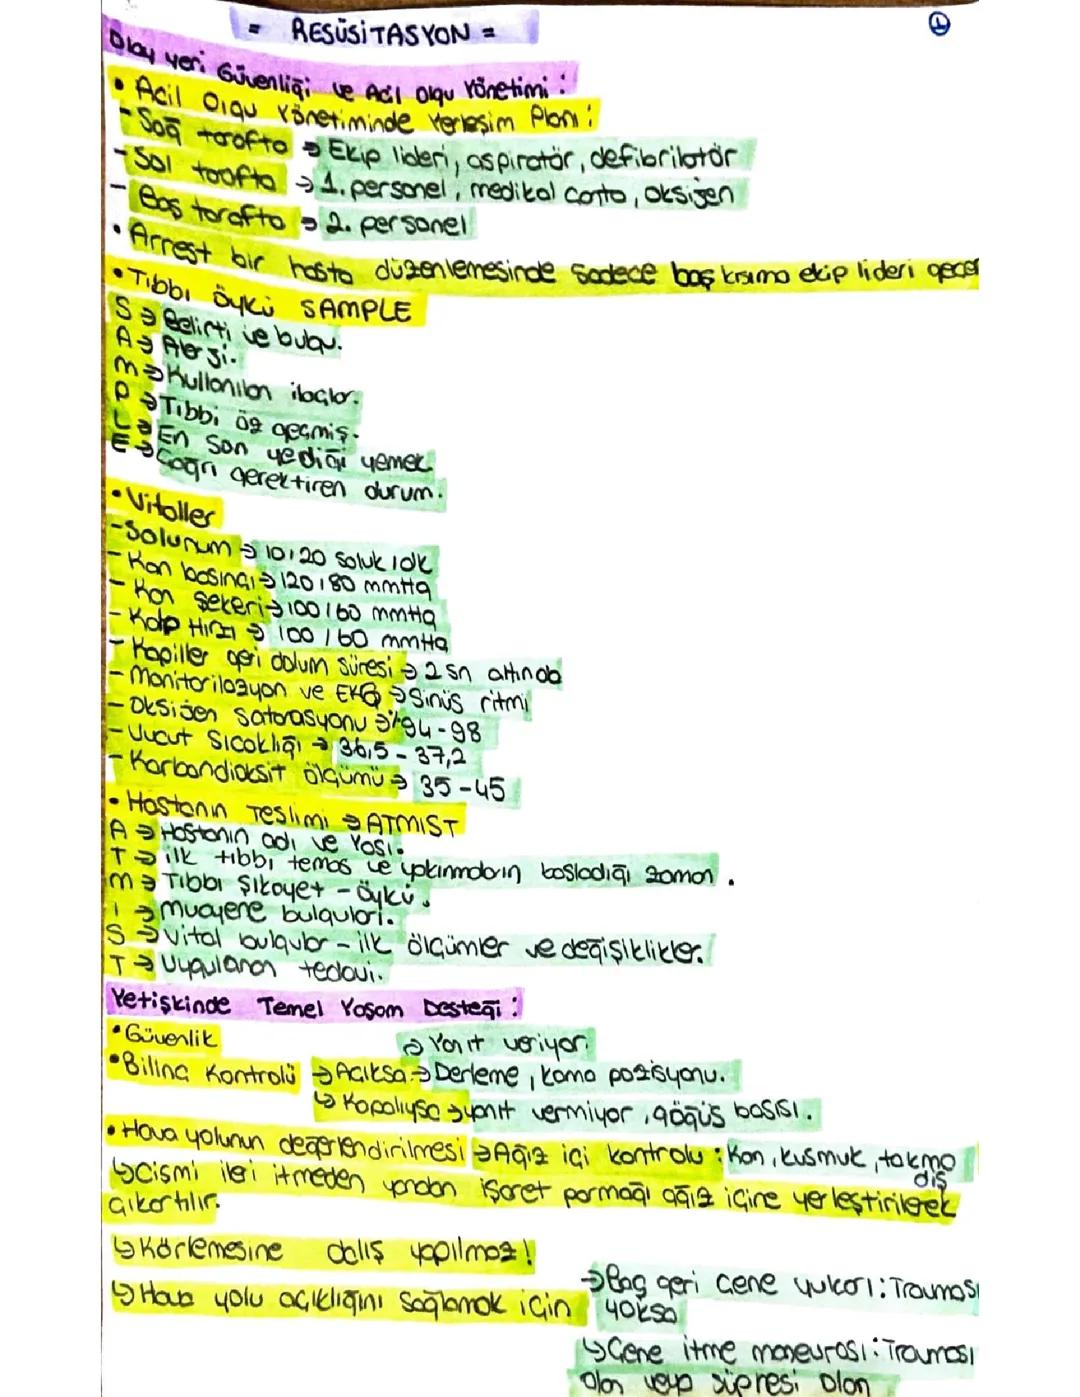 = RESÜSİTASYON =
1
Olay yeri Güvenliği ve Acil olgu Yönetimi :
• Acil Olgu Yönetiminde Yerleşim Planı :
- Sağ tarafta → Ekip lideri, aspiratör, defibrilatör
- Sol tarafta → 1. personel, medikal çanta, oksijen
- Baş tarafta → 2. personel
• Arrest bir hasta düzenlemesinde sadece baş kısma ekip lideri geçer
• Tıbbi öykü SAMPLE
S → Belirti ve bulgu.
A → Alerji.
M → Kullanılan ilaçlar.
P → Tıbbi öz geçmiş.
L → En son yediği yemek
E → Çağrı gerektiren durum.
• Vitaller
- Solunum → 10/20 soluk/dk
- Kan basıncı → 120/80 mmHg
- Kan şekeri → 100/60 mmHg
- Kalp Hızı → 100/60 mmHg
- Kapiller geri dolum süresi → 2 sn altında
- Monitorilazyon ve EKG → Sinüs ritmi
- Oksijen Satorasyonu → %94-98
- Vucut Sıcaklığı → 36,5 - 37,2
- Karbondioksit ölçümü → 35-45
• Hastanın Teslimi → ATMIST
A → Hastanın adı ve Yaşı.
T → ilk tıbbı temas ve yakınmaların başladığı zaman.
M → Tıbbı Şikayet - öykü.
I → muayene bulguları.
S → Vital bulgular - ilk ölçümler ve değişiklikler.
T → Uygulanan tedavi.
Yetişkinde Temel Yaşam Desteği :
• Güvenlik
→ Yanıt veriyor.
• Bilinç Kontrolü → Açıksa → Derleme, koma pozisyonu.
↳ Kapalıysa → yanıt vermiyor, göğüs basısı.
• Hava yolunun değerlendirilmesi → Ağız içi kontrolu : Kan, kusmuk, takma diş
↳ Cismi ileri itmeden yandan işaret parmağı ağız içine yerleştirilerek
çıkartılır.
↳ Körlemesine dalış yapılmaz!
↳ Hava yolu açıklığını sağlamak için → Baş geri çene yukarı : Travması
yoksa
↳ Çene itme manevrası : Travması
olan veya şüpesi olan